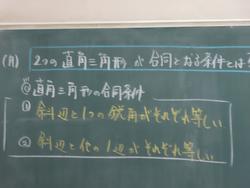 (A) 2つの直角三角形が合同となる条件とは
◎直角三角形の合同条件
① 斜辺と1つの鋭角がそれぞれ等しい
② 斜辺と他の1辺がそれぞれ等しい